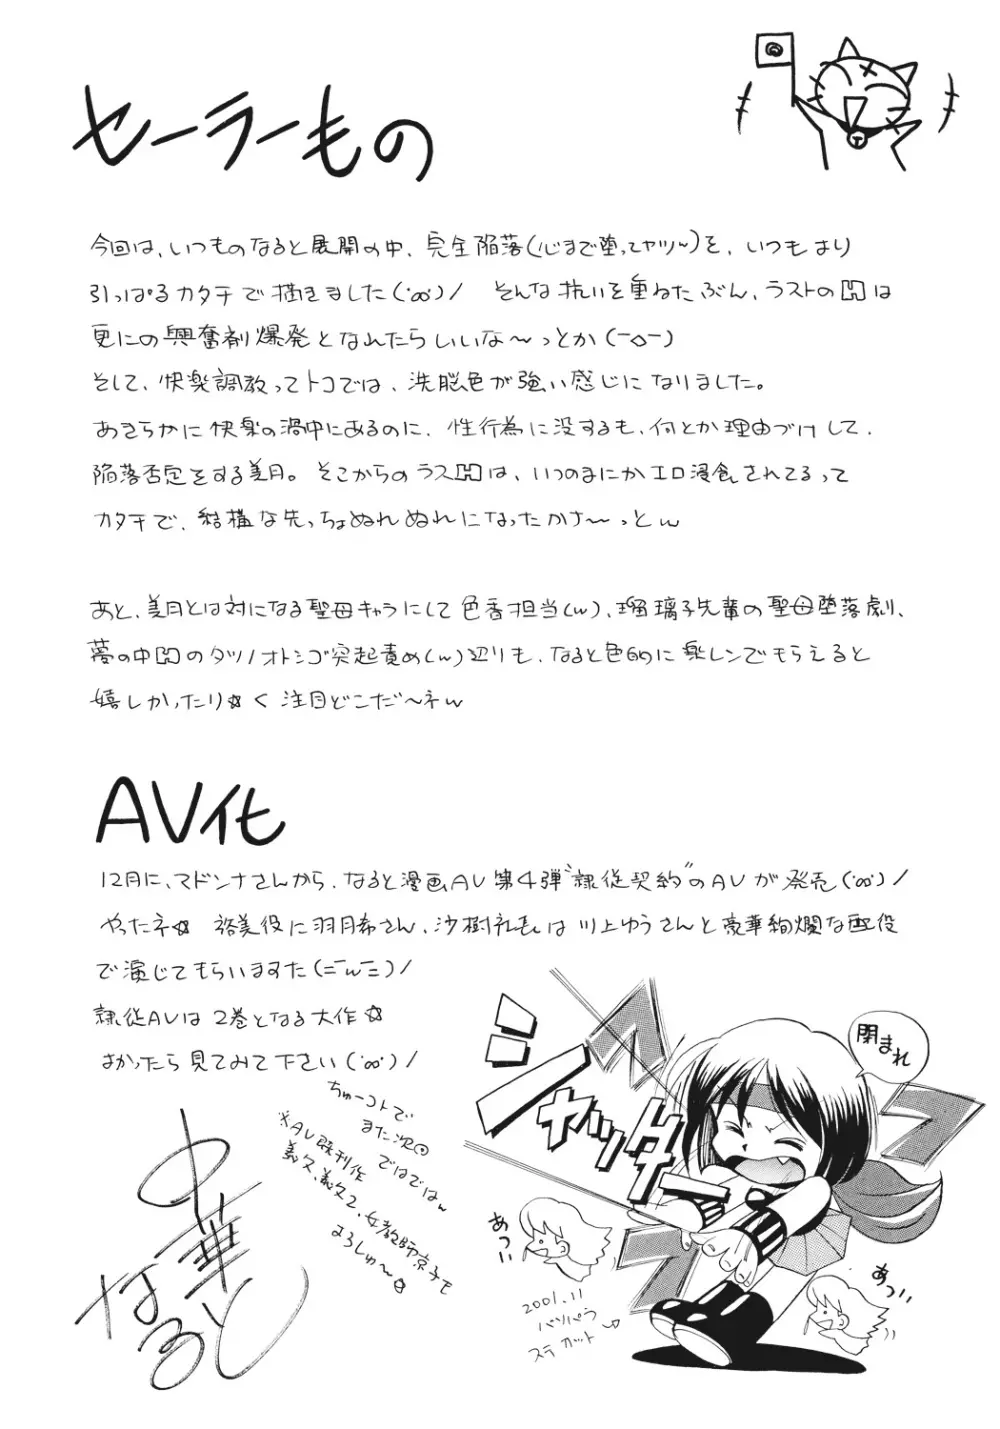 セーラーもの
今回は、いつものなると展開の中、完全陥落(心まで堕ってヤツ〜)を、いつもより
引っぱるカタチで描きました(°∞°)/ そんな抗いを重ねたぶん、ラストのHは
更にの興奮剤爆発となれたらいいな〜っとか(ー◇ー)
そして、快楽調教ってトコでは、洗脳色が強い感じになりました。
あきらかに快楽の渦中にあるのに、性行為に没するも、何とか理由づけして、
陥落否定をする美月。そこからのラスHは、いつのまにかエロ浸食されてるって
カタチで、結構な先っちょぬれぬれになったかさ〜っとw
あと、美月とは対になる聖母キャラにして色香担当(w)、瑠璃子先輩の聖母堕落劇、
夢の中間のタツノオトシゴ突起責め(w)辺りも、なると色的に楽しンでもらえると
嬉しかったり☆く注目どこだ〜ネw
AV化
12月に、マドンナさんから、なると漫画AV第4弾"隷従契約"のAVが発売(°∞°)/
やったネ☆ 裕美役に羽月希さん、沙樹礼は川上ゆうさんと豪華絢爛な配役
で演じてもらいますた(ニーwニ)/
隷従AVは2巻となる大作☆
よかったら見てみて下さい(°∞°)/
ちゅーコトで
また次回
ではではw
※AV既刊作
義父、義父2、女教師京子も
よろしゅ〜☆
中華なると
シャッター
閉まれ
あっつい
あっつい
2001.11
パソパラ
ステカット